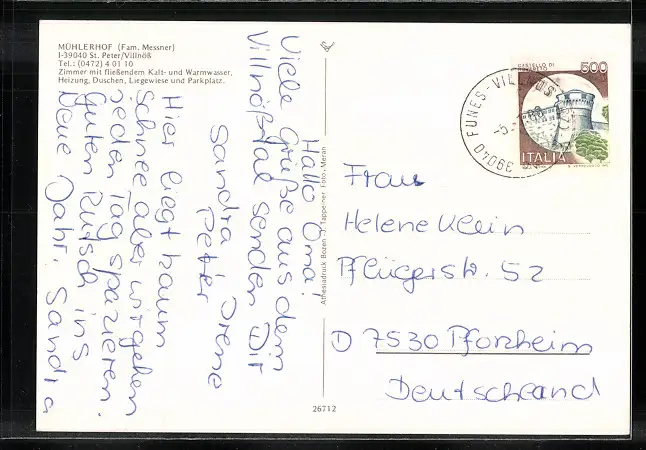 MÜHLERHOF (Fam. Messner)
I-39040 St. Peter/Villnöß
Tel.: (0472) 4 01 10
Zimmer mit fließendem Kalt- und Warmwasser,
Heizung, Duschen, Liegewiese und Parkplatz.
Hallo Oma!
Viele Grüße aus dem
Villnößtal senden Dir
Sandra, Irene
Peter
Hier liegt kaum
Schnee aber wir gehen
jeden Tag spazieren.
Guten Rutsch ins
Neue Jahr. Sandra
Athesiadruck Bozen - Tappeiner Foto, Meran
26712
39040 FUNES-VILLNÖSS
CASTELLO DI
500
ITALIA
Frau
Helene Klein
Pflügerstr. 52
D 7530 Pforzheim
Deutschland